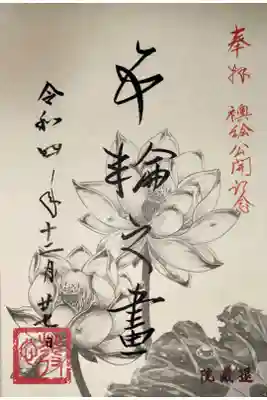 奉拝 襖絵公開記念
輪之畫
令和四年十二月廿七日
退藏院